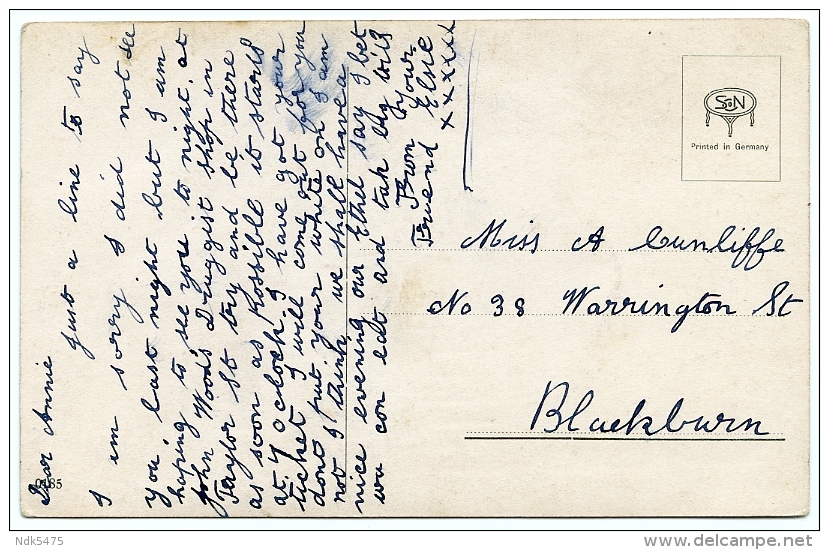 Dear Annie
Just a line to say
I am sorry I did not see
you last night but I am
hoping to see you to night at
John Woods Druggist shop in
Taylor St try and be there
as soon as Possible it starts
at 7 oclock I have got your
ticket I will come out for you
dont put your white on I am
not I think we shall have a
nice evening our Ethel say I bet
wu con eat ard tak big wills
From Your
Friend Elsie
xxxxxx
S&N
Printed in Germany
Miss A Cunliffe
No 38 Warrington St
Blackburn
0185
Ndk5475
delcampe.net